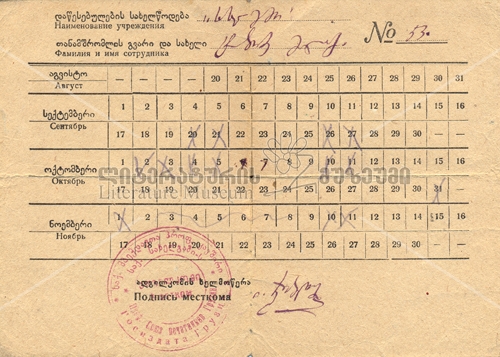 დაწესებულების სახელწოდება
Наименование учреждения
თანამშრომლის გვარი და სახელი № 53.
Фамилия и имя сотрудника
აგვისტო — — — — — 20 21 22 23 24 25 26 27 28 29 30 31
Август
სექტემბერი 1 2 3 4 5 6 7 8 9 10 11 12 13 14 15 16
Сентябрь 17 18 19 20 21 22 23 24 25 26 27 28 29 30 — —
ოქტომბერი 1 2 3 4 5 6 7 8 9 10 11 12 13 14 15 16
Октябрь 17 18 19 20 21 22 23 24 25 26 27 28 29 30 31 —
ლიტერატურის მუზეუმი
Literature Museum
ნოემბერი 1 2 3 4 5 6 7 8 9 10 11 12 13 14 15 16
Ноябрь 17 18 19 20 21 22 23 24 25 26 27 28 29 30 — —
ადგილკომის ხელმოწერა
Подпись месткома